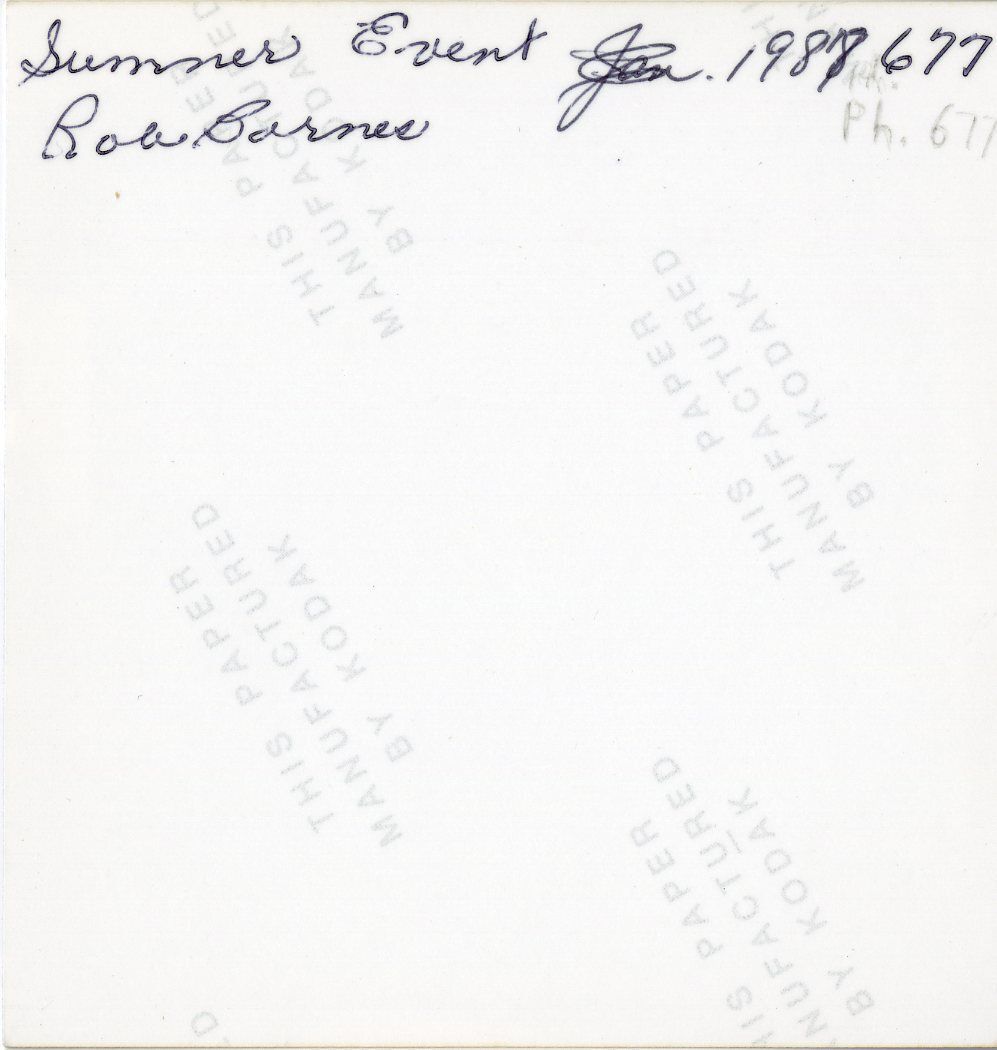 Summer Event Jan. 1987 677
Rob Barnes
Ph. 677
THIS PAPER
MANUFACTURED
BY KODAK
THIS PAPER
MANUFACTURED
BY KODAK
THIS PAPER
MANUFACTURED
BY KODAK
THIS PAPER
MANUFACTURED
BY KODAK